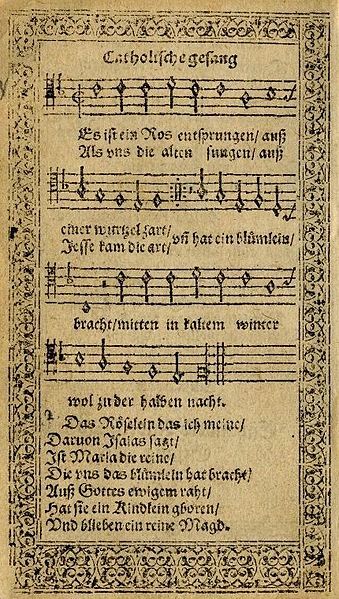 Catholische gesang
Es ist ein Ros entsprungen/ auß
Als vns die alten sungen/ auß
einer wurtzel zart/
Jesse kam die art/ vñ hat ein blümlein/
bracht/ mitten in kaltem winter
wol zu der halben nacht.
2.
Das Röselein das ich meine/
Daruon Isaias sagt/
Ist Maria die reine/
Die vns das blümlein hat bracht/
Auß Gottes ewigem raht/
Hat sie ein Kindlein gboren/
Vnd blieben ein reine Magd.